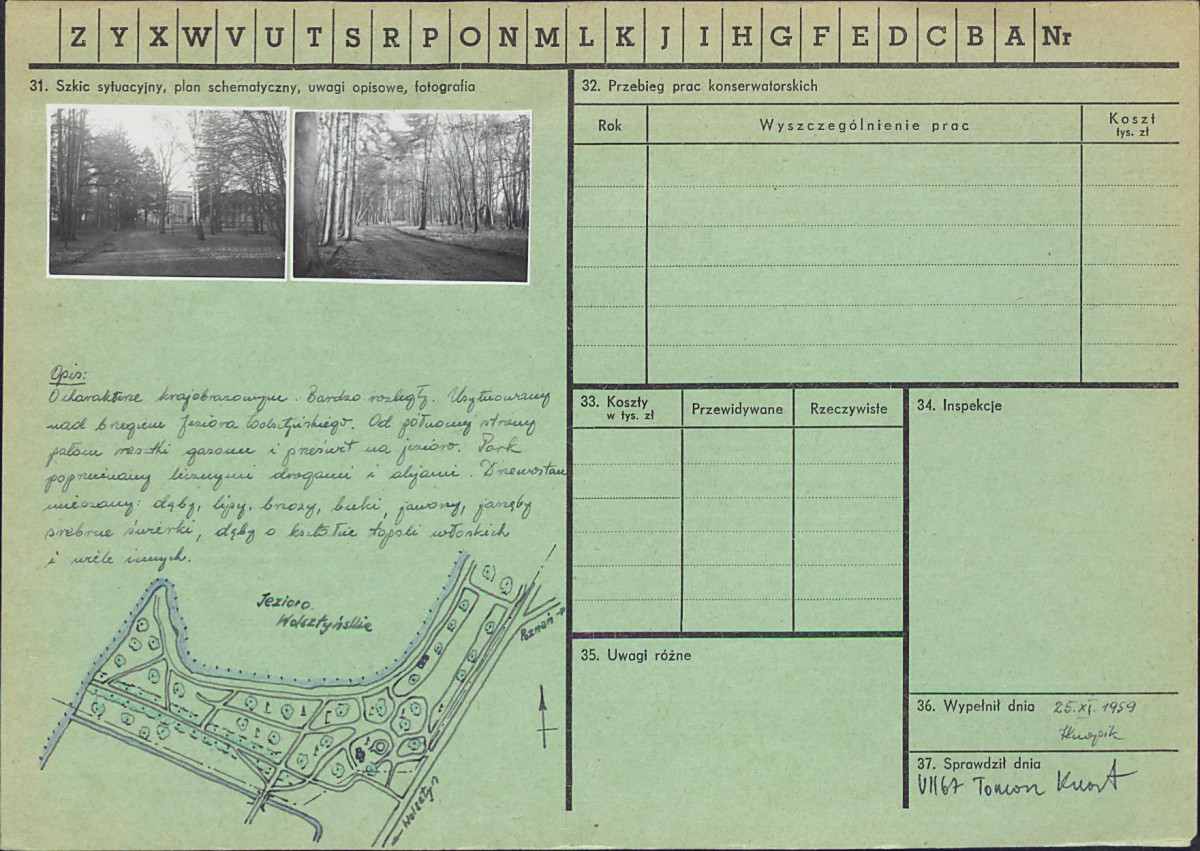 Z Y X W V U T S R P O N M L K J I H G F E D C B A Nr
31. Szkic sytuacyjny, plan schematyczny, uwagi opisowe, fotografia
Opis:
O charakterze krajobrazowym. Bardzo rozległy. Usytuowany
nad brzegiem Jeziora Wolsztyńskiego. Od północnej strony
pałacu resztki gazonu i prześwit na jezioro. Park
poprzecinany licznymi drogami i alejami. Drzewostan
mieszany: dęby, lipy, brzozy, buki, jawory, jarzęby
srebrne świerki, dęby o kształcie topoli włoskich
i wiele innych.
Jezioro
Wolsztyńskie
Poznań
Wolsztyn
32. Przebieg prac konserwatorskich
Rok
Wyszczególnienie prac
Koszt
tys. zł
33. Koszty
w tys. zł
Przewidywane
Rzeczywiste
34. Inspekcje
35. Uwagi różne
36. Wypełnił dnia 25.XI.1959
37. Sprawdził dnia
VII 67 Tomasz